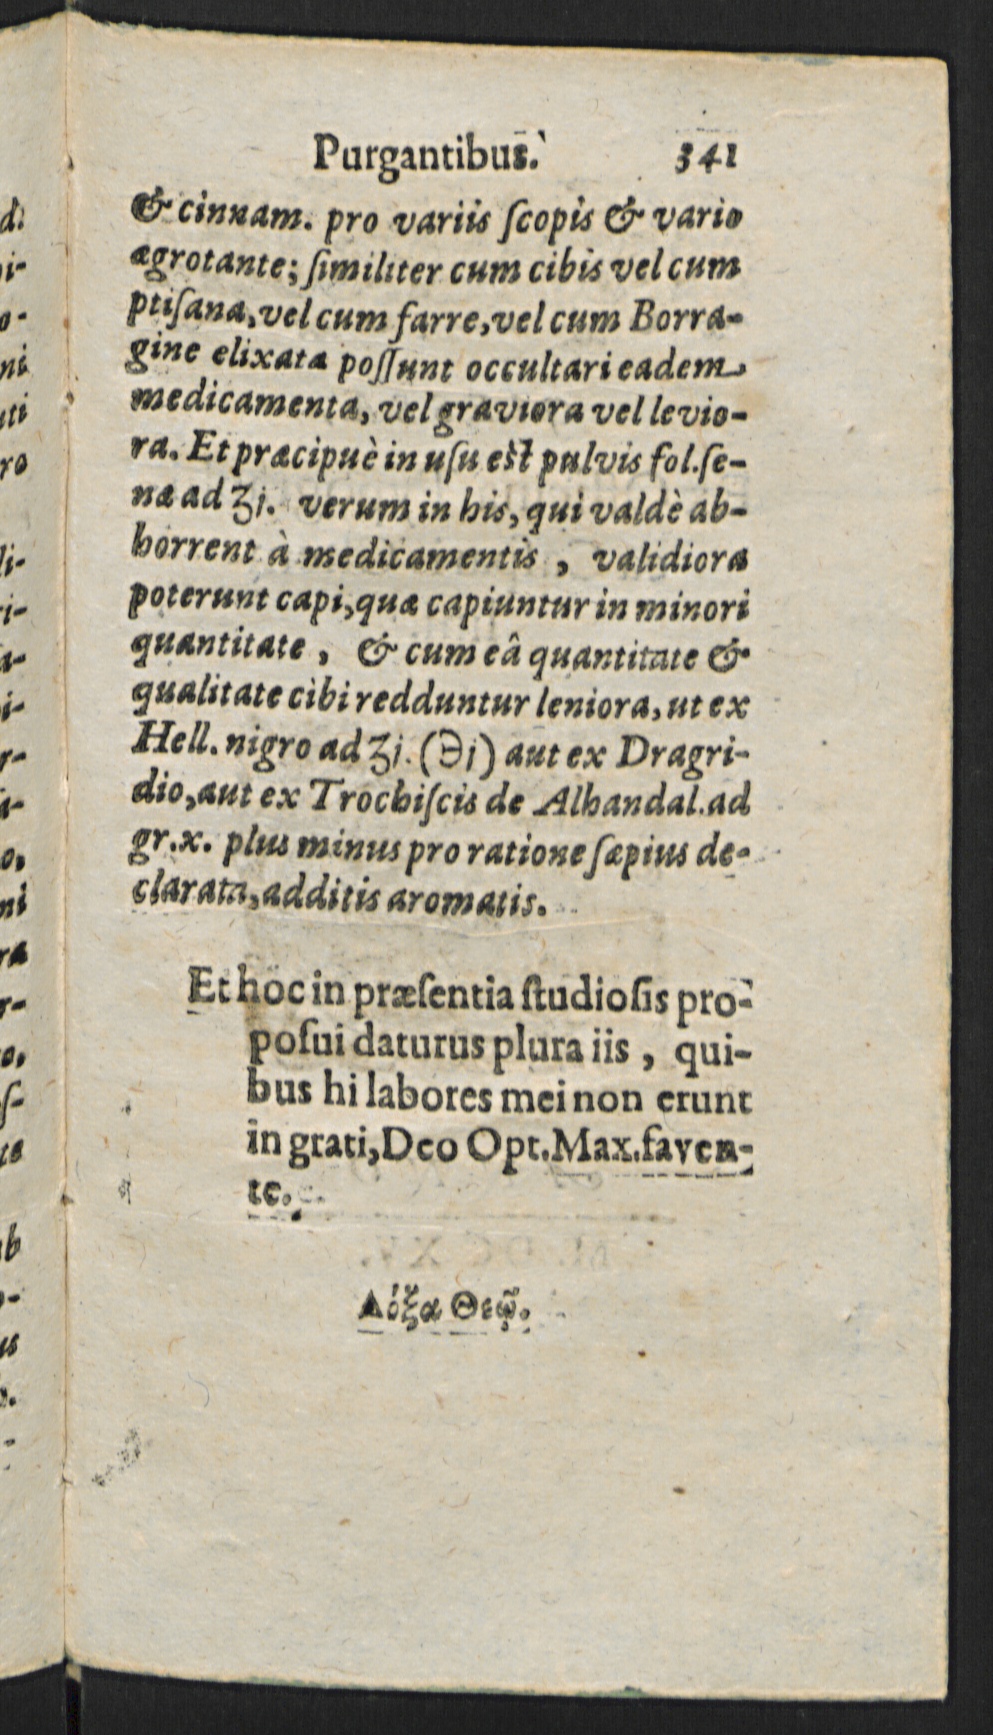 Purgantibus. 341
& cinnam. pro variis ſcopis & vario
ægrotante; ſimiliter cum cibis vel cum
ptiſana, vel cum farre, vel cum Borra-
gine elixata poſſunt occultari eadem
medicamenta, vel graviora vel levio-
ra. Et præcipuè in uſu est pulvis fol. ſe-
næ ad ʒj. verum in his, qui valdè ab-
horrent à medicamentis, validiora
poterunt capi, quæ capiuntur in minori
quantitate, & cum eâ quantitate &
qualitate cibi redduntur leniora, ut ex
Hell. nigro ad ʒj. (℈j) aut ex Dragri-
dio, aut ex Trochiſcis de Alhandal. ad
gr. x. plus minus pro ratione ſæpius de-
clarata, additis aromatis.
Et hoc in præſentia ſtudioſis pro-
poſui daturus plura iis, qui-
bus hi labores mei non erunt
in grati, Deo Opt. Max. faven-
te.
Δόξα Θεῷ.